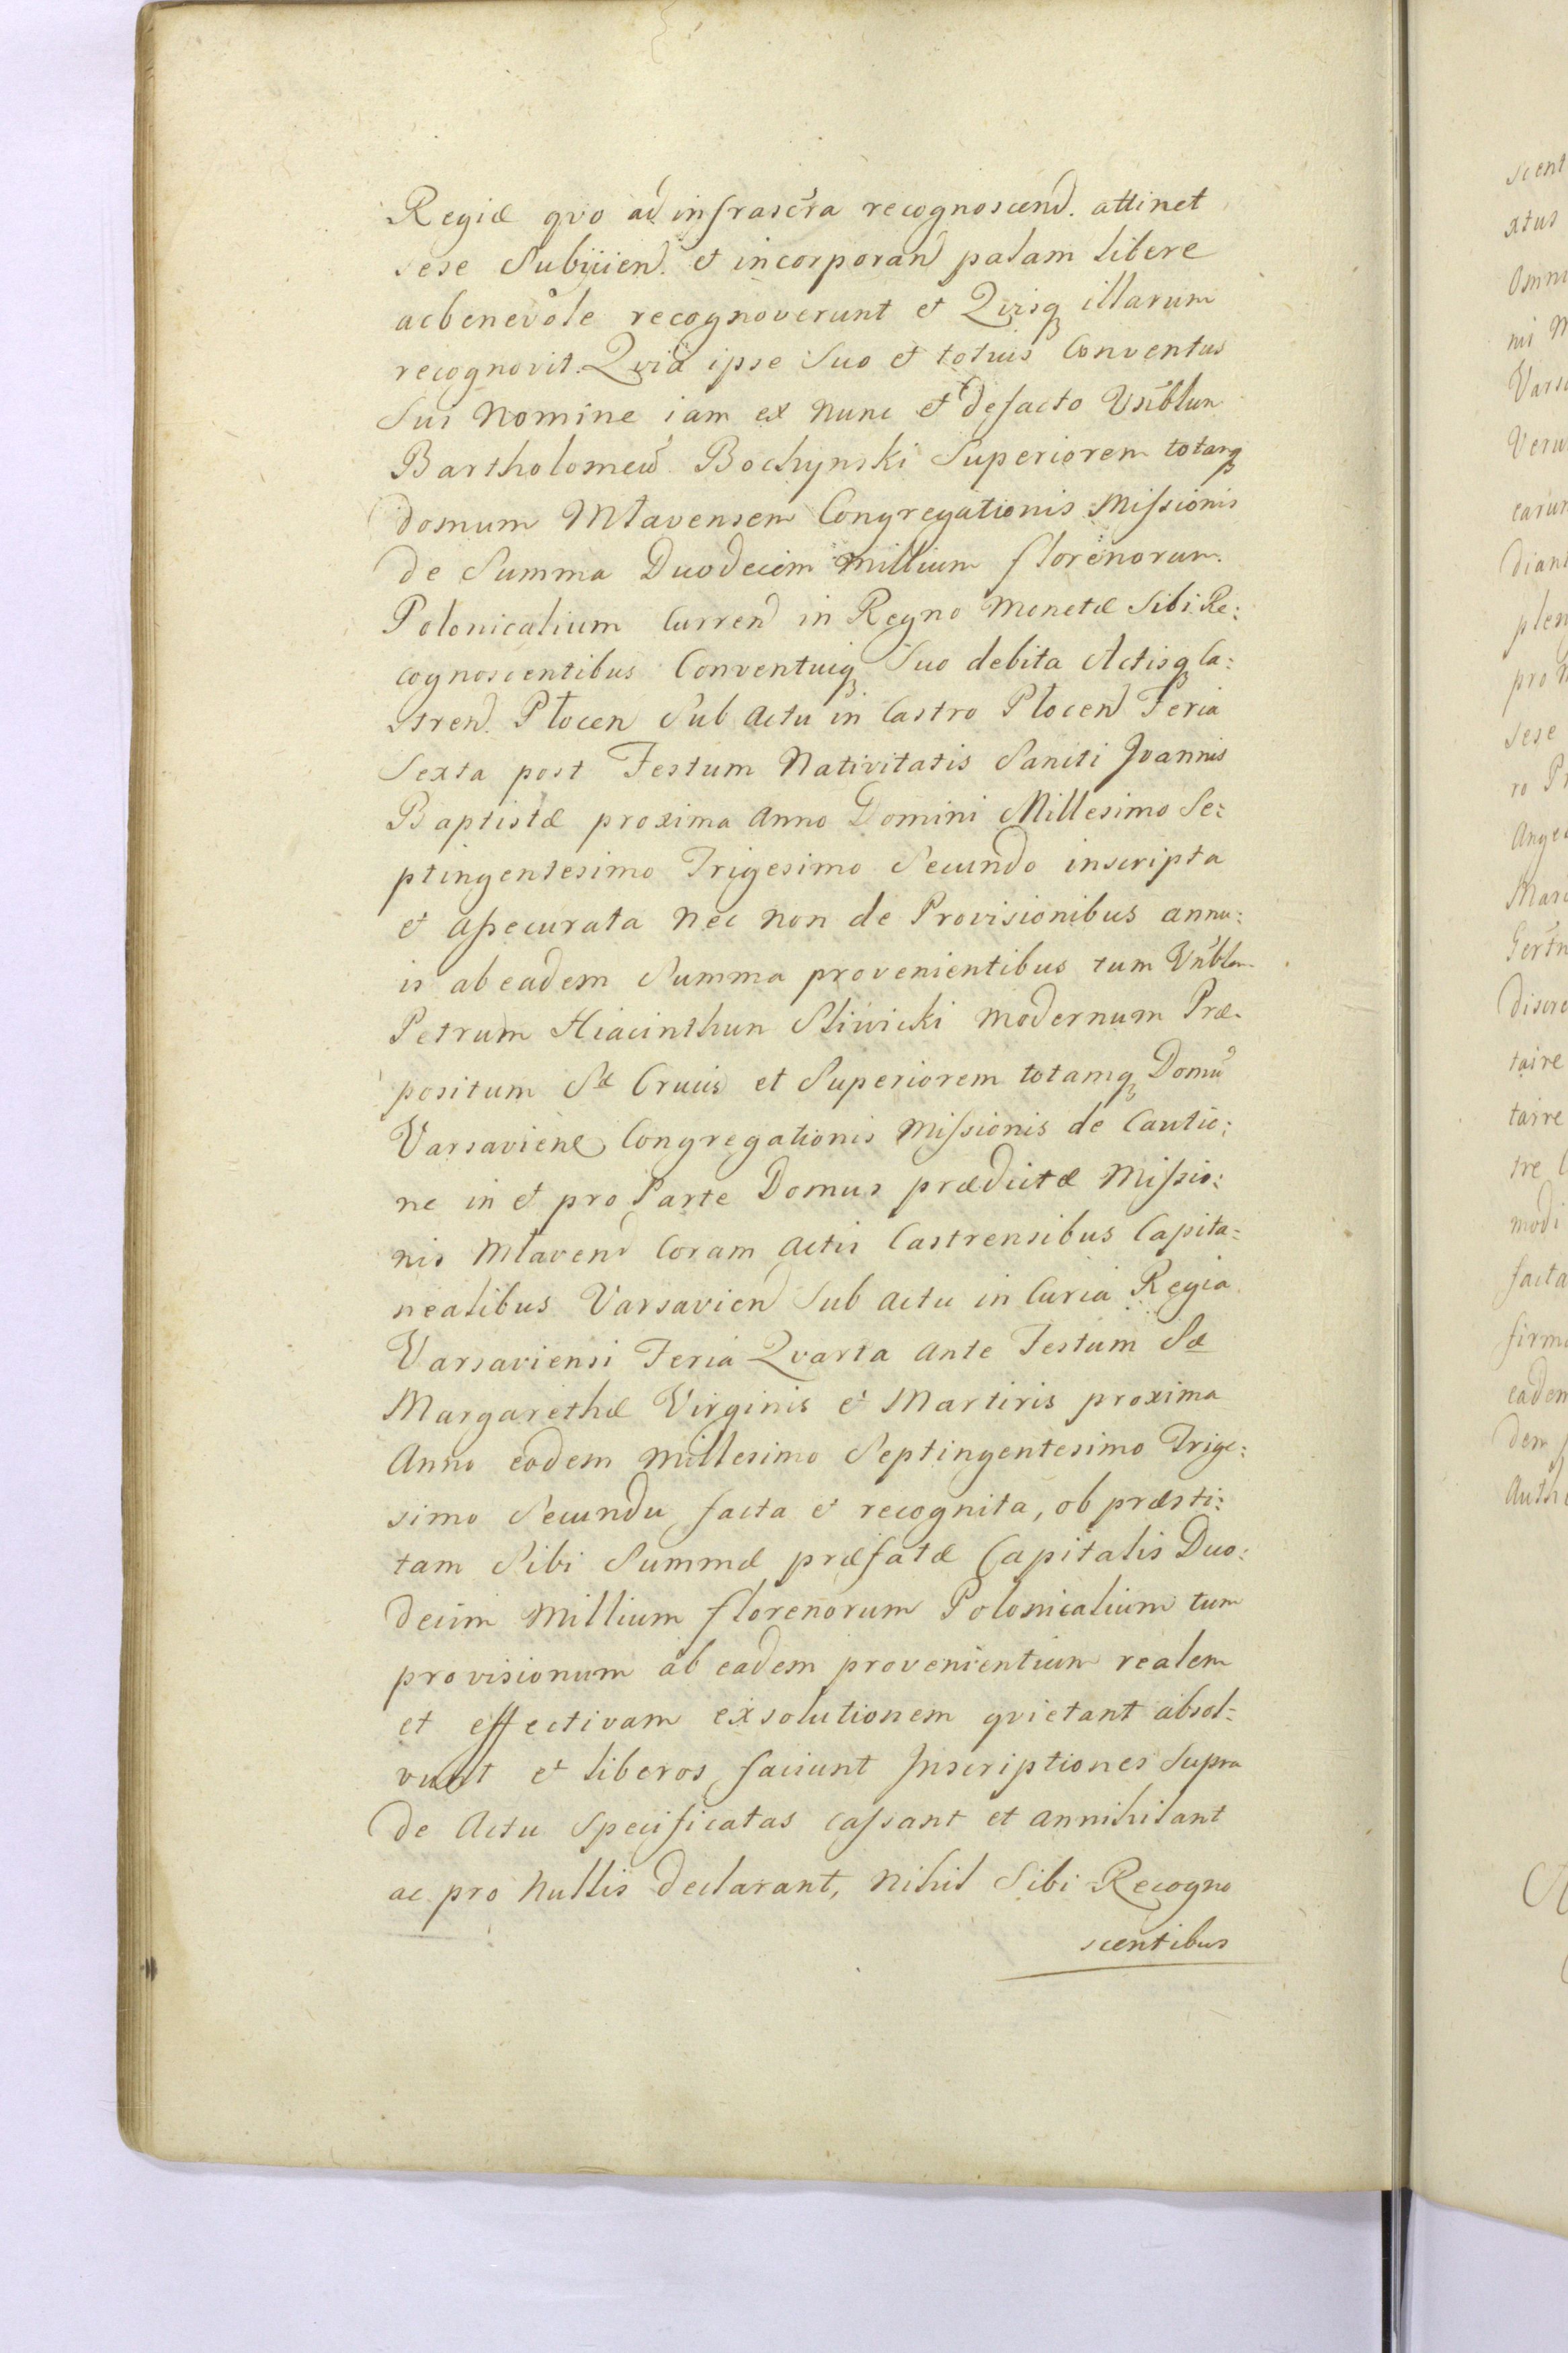 Regiæ qvo ad infrascr̃a recognoscend. attinet
sese Subijcien. et incorporand palam libere
ac benevole recognoverunt et Qvisq illarum
recognovit. Qvia ipse Suo et totius Conventus
Sui Nomine iam ex nunc et defacto Vnb̃lun
Bartholomeũ Bochynski Superiorem totamq
domum Mławensem Congregationis Missionis
de Summa Duodecim Millium florenorum
Polonicalium Curren in Regno Monetæ Sibi Re:
cognoscentibus Conventuiq Suo debita Actisq Ca:
stren. Płocen Sub Actu in Castro Płocen Feria
Sexta post Festum Nativitatis Sancti Joannis
Baptistæ proxima Anno Domini Millesimo Se:
ptingentesimo Trigesimo Secundo inscripta
et assecurata nec non de Provisionibus annu:
is ab eadem Summa provenientibus tum Vnb̃lem
Petrum Hiacinthun Sliwicki modernum Præ-
positum Sæ Crucis et Superiorem totamq Domũ
Varsavien Congregationis Missionis de Cautio:
ne in et pro Parte Domus prædictæ Missio:
nis Młaven Coram Actis Castrensibus Capita:
nealibus Varsavien Sub actu in Curia Regia
Varsaviensi Feria Qvarta ante Festum Sæ
Margarethæ Virginis et Martiris proxima
Anno eodem Millesimo Septingentesimo Trige:
simo Secundu facta et recognita, ob præsti:
tam Sibi Summæ præfatæ Capitalis Duo:
decim Millium florenorum Polonicalium tum
provisionum ab eadem provenientium realem
et effectivam exsolutionem qvietant absol:
vunt et liberos faciunt Inscriptiones Supra
de Actu Specificatas cassant et annihilant
ac pro Nullis declarant, Nihil Sibi Recogno
scentibus
scent
xtus
Omni
Varsa
Veru
earum
diant
plen
pro
sese
ro Pr
Ange
Mari
discre
taire
taire
tre
modi
facta
firma
eadem
dem
Auth